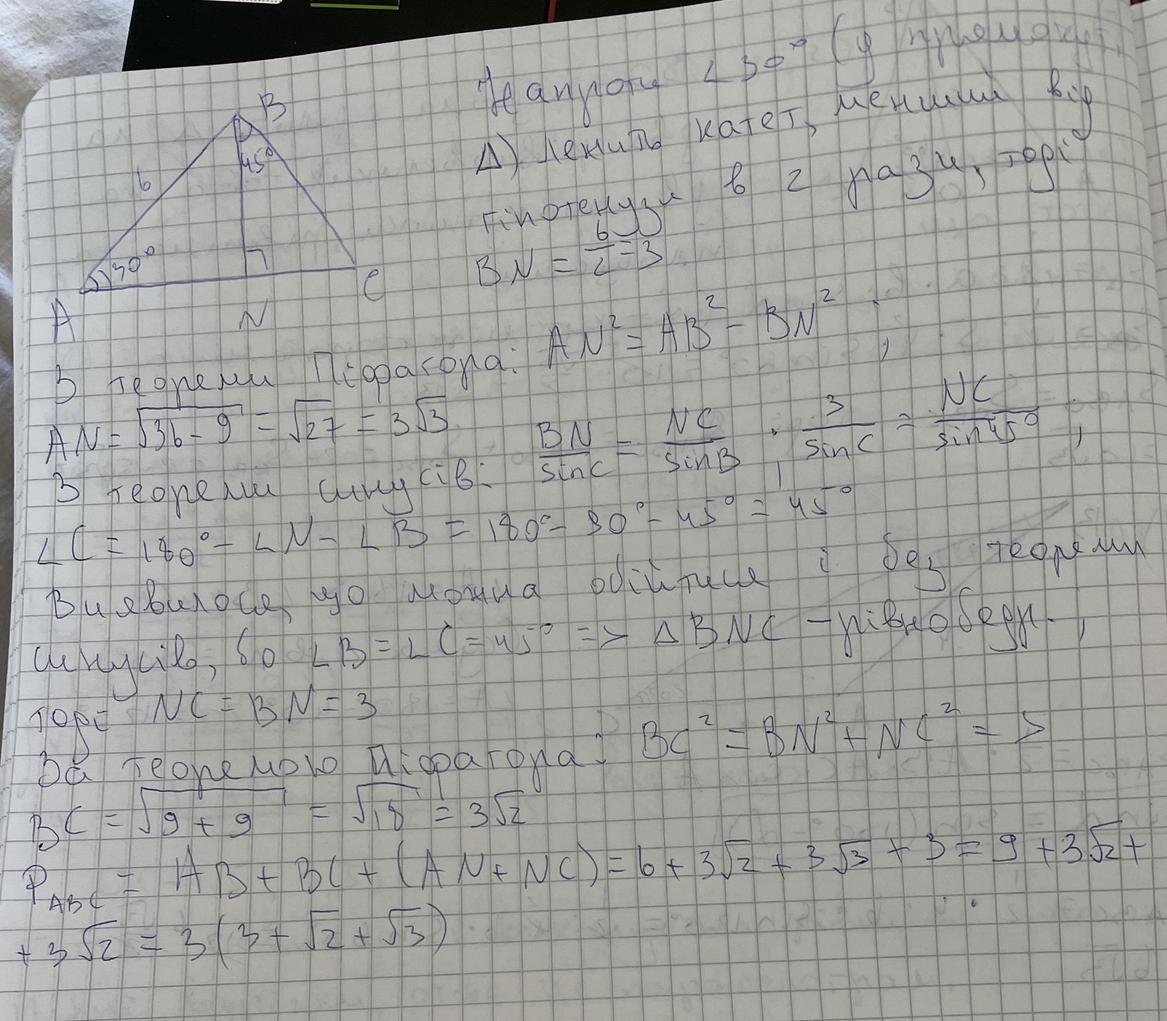 Напроти ∠30° (у прямокут.
Δ) лежить катет, менший від
гіпотенузи в 2 рази, тоді
BN = 6/2 = 3
B
45°
6
30°
A
N
C
З теореми Піфагора: AN² = AB² - BN²;
AN = √36-9 = √27 = 3√3
З теореми синусів: BN/sinC = NC/sinB; 3/sinC = NC/sin45°;
∠C = 180° - ∠N - ∠B = 180° - 90° - 45° = 45°
Виявилося, що можна обійтися і без теореми
синусів, бо ∠B = ∠C = 45° => ΔBNC - рівнобедр.,
тоді NC = BN = 3
За теоремою Піфагора: BC² = BN² + NC² =>
BC = √9+9 = √18 = 3√2
P ABC = AB + BC + (AN + NC) = 6 + 3√2 + 3√3 + 3 = 9 + 3√2 +
+ 3√2 = 3(3 + √2 + √3)